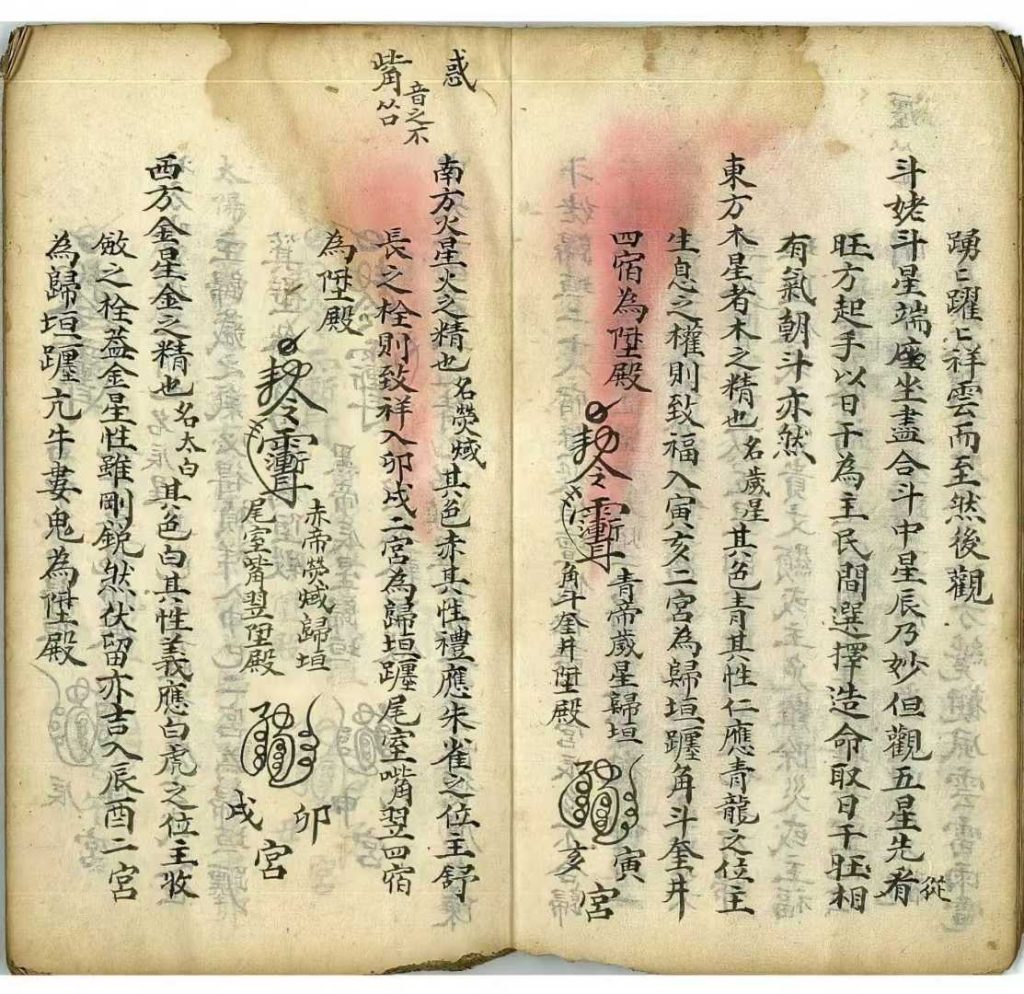 踴〻躍〻祥雲而至然後觀
斗姥斗星端座坐盡合斗中星辰乃妙但觀五星先看從
旺方起手以日干為主民間選擇造命取日干旺相
有氣朝斗亦然
東方木星者木之精也名歲星其色青其性仁應青龍之位主
生息之權則致福入寅亥二宮為歸垣躔角斗奎井
四宿為陞殿
敕令
青帝歲星歸垣
角斗奎井陞殿
寅
亥
宮
惑
觜音之不
㕣
南方火星火之精也名熒惑其色赤其性禮應朱雀之位主舒
長之栓則致祥入卯戌二宮為歸垣躔尾室嘴翌四宿
為陞殿
敕令
赤帝熒惑歸垣
尾室觜翌陞殿
卯
戌
宮
西方金星金之精也名太白其色白其性義應白虎之位主收
斂之栓蓋金星性雖剛銳然伏留亦吉入辰酉二宮
為歸垣躔亢牛婁鬼為陞殿